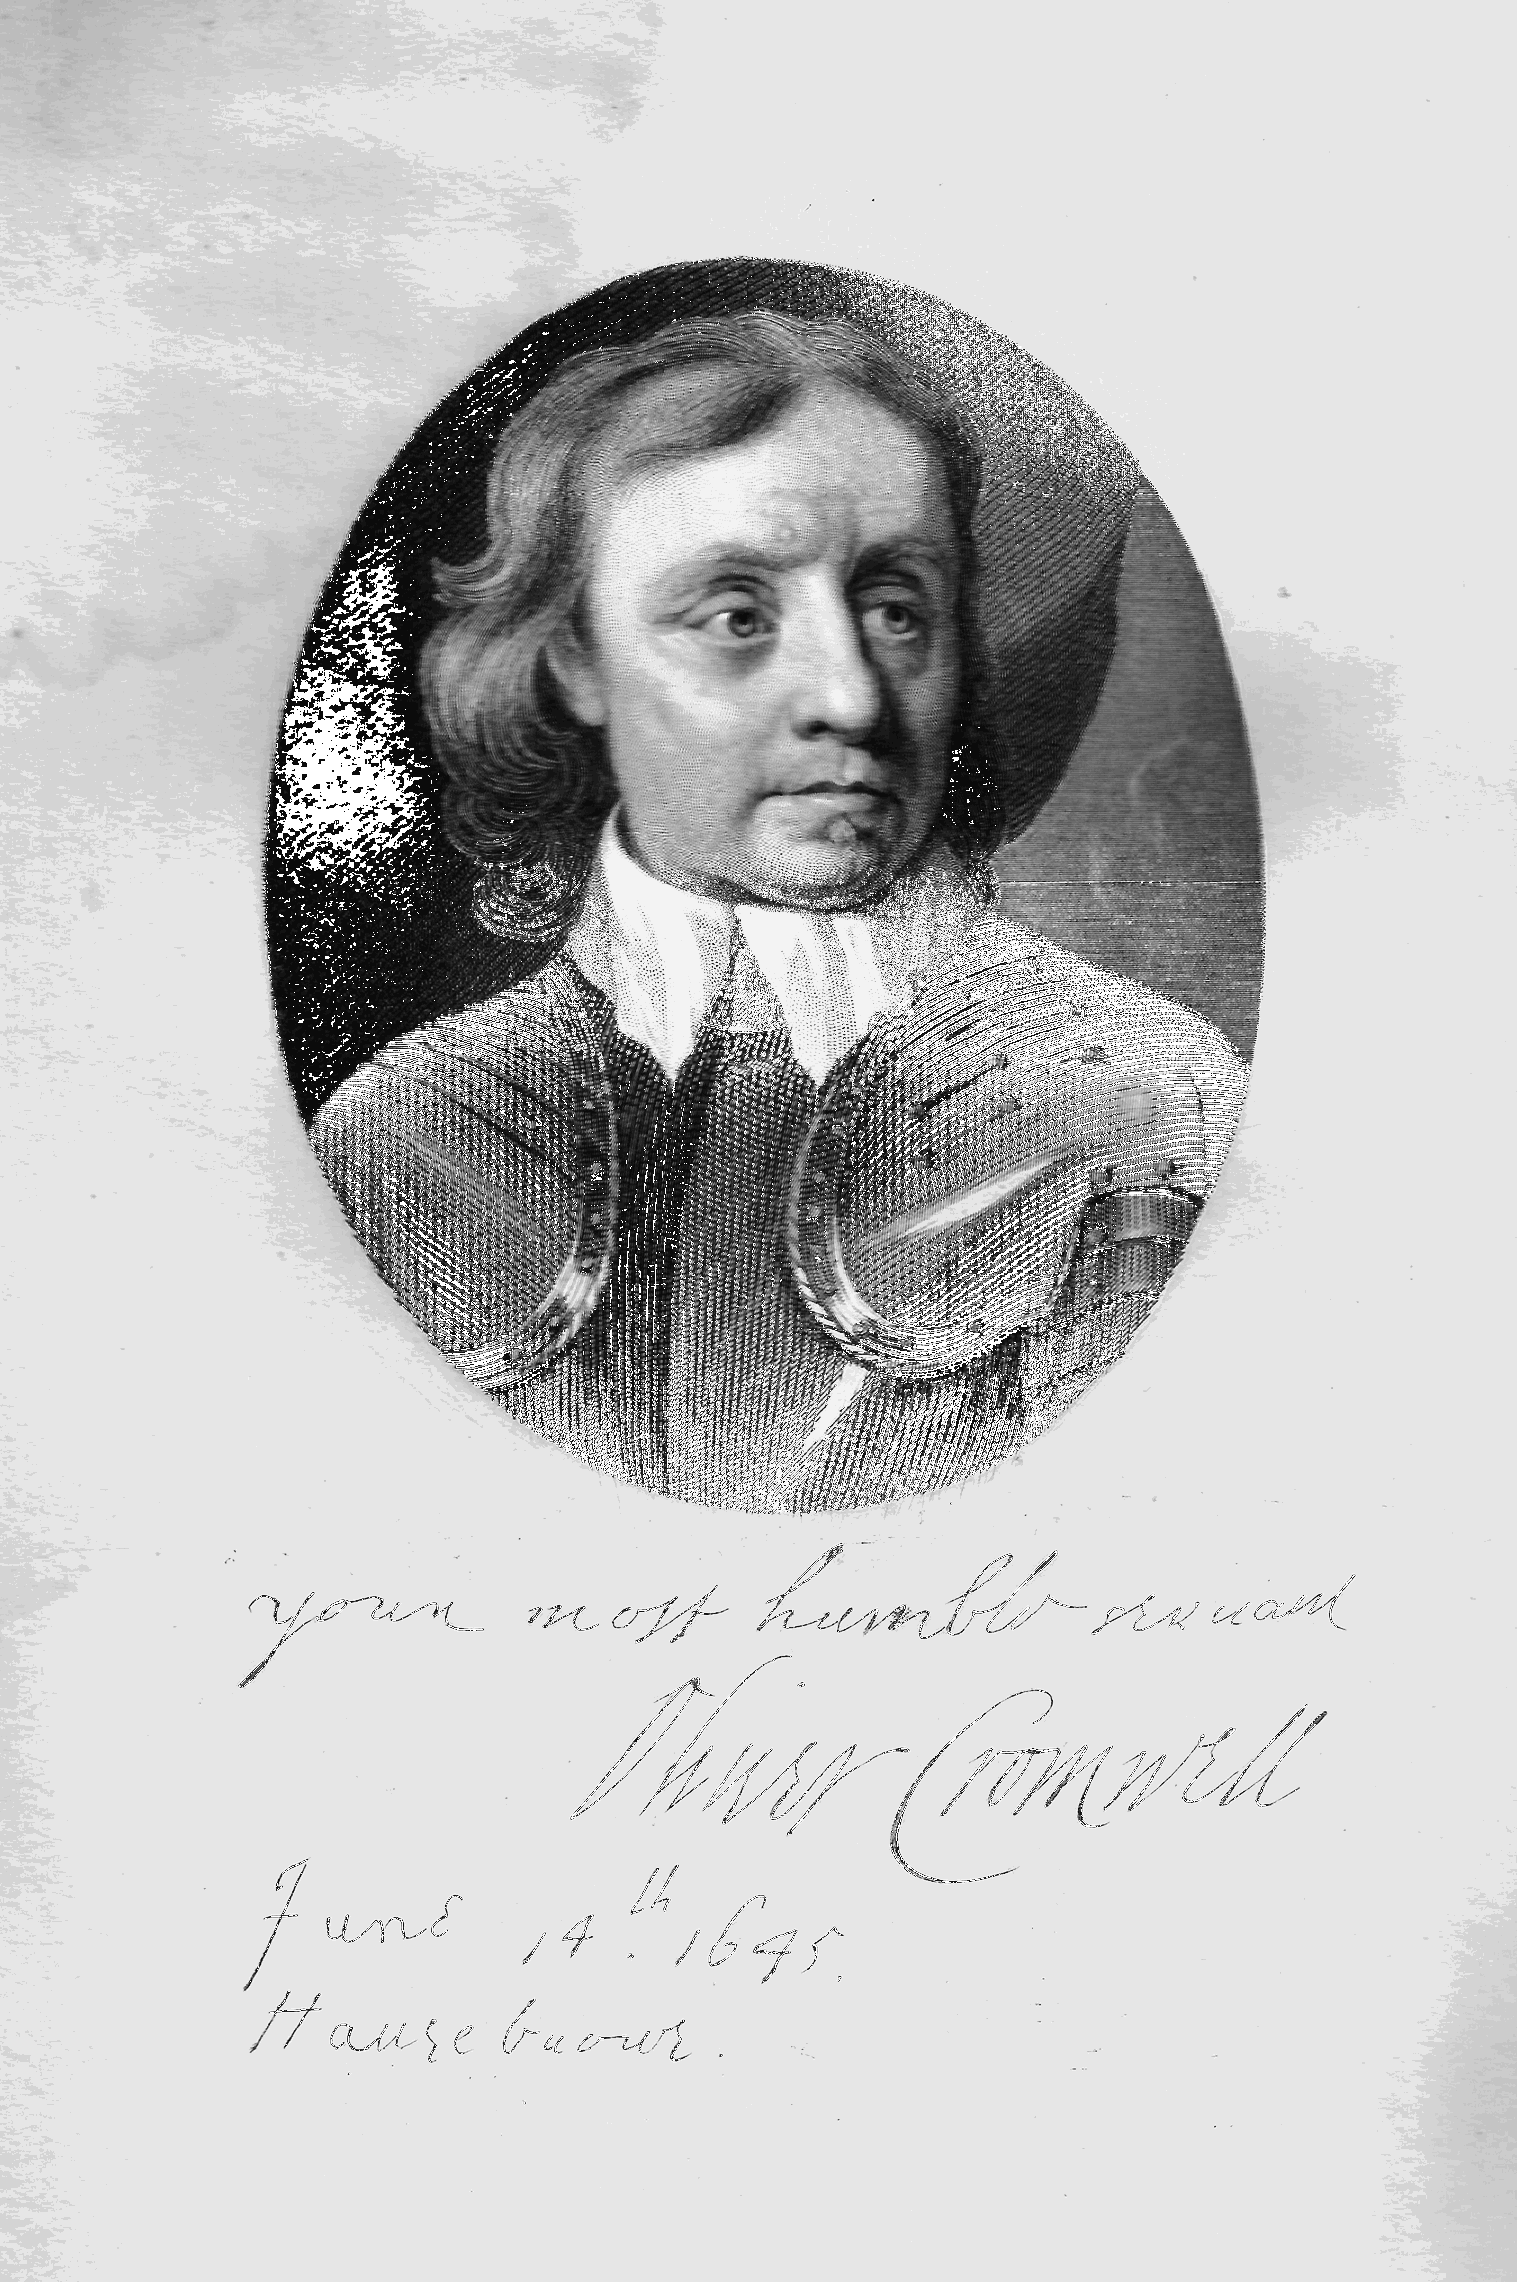 your most humble servant
Oliver Cromwell
June 14th. 1645.
Hauzebrowe.